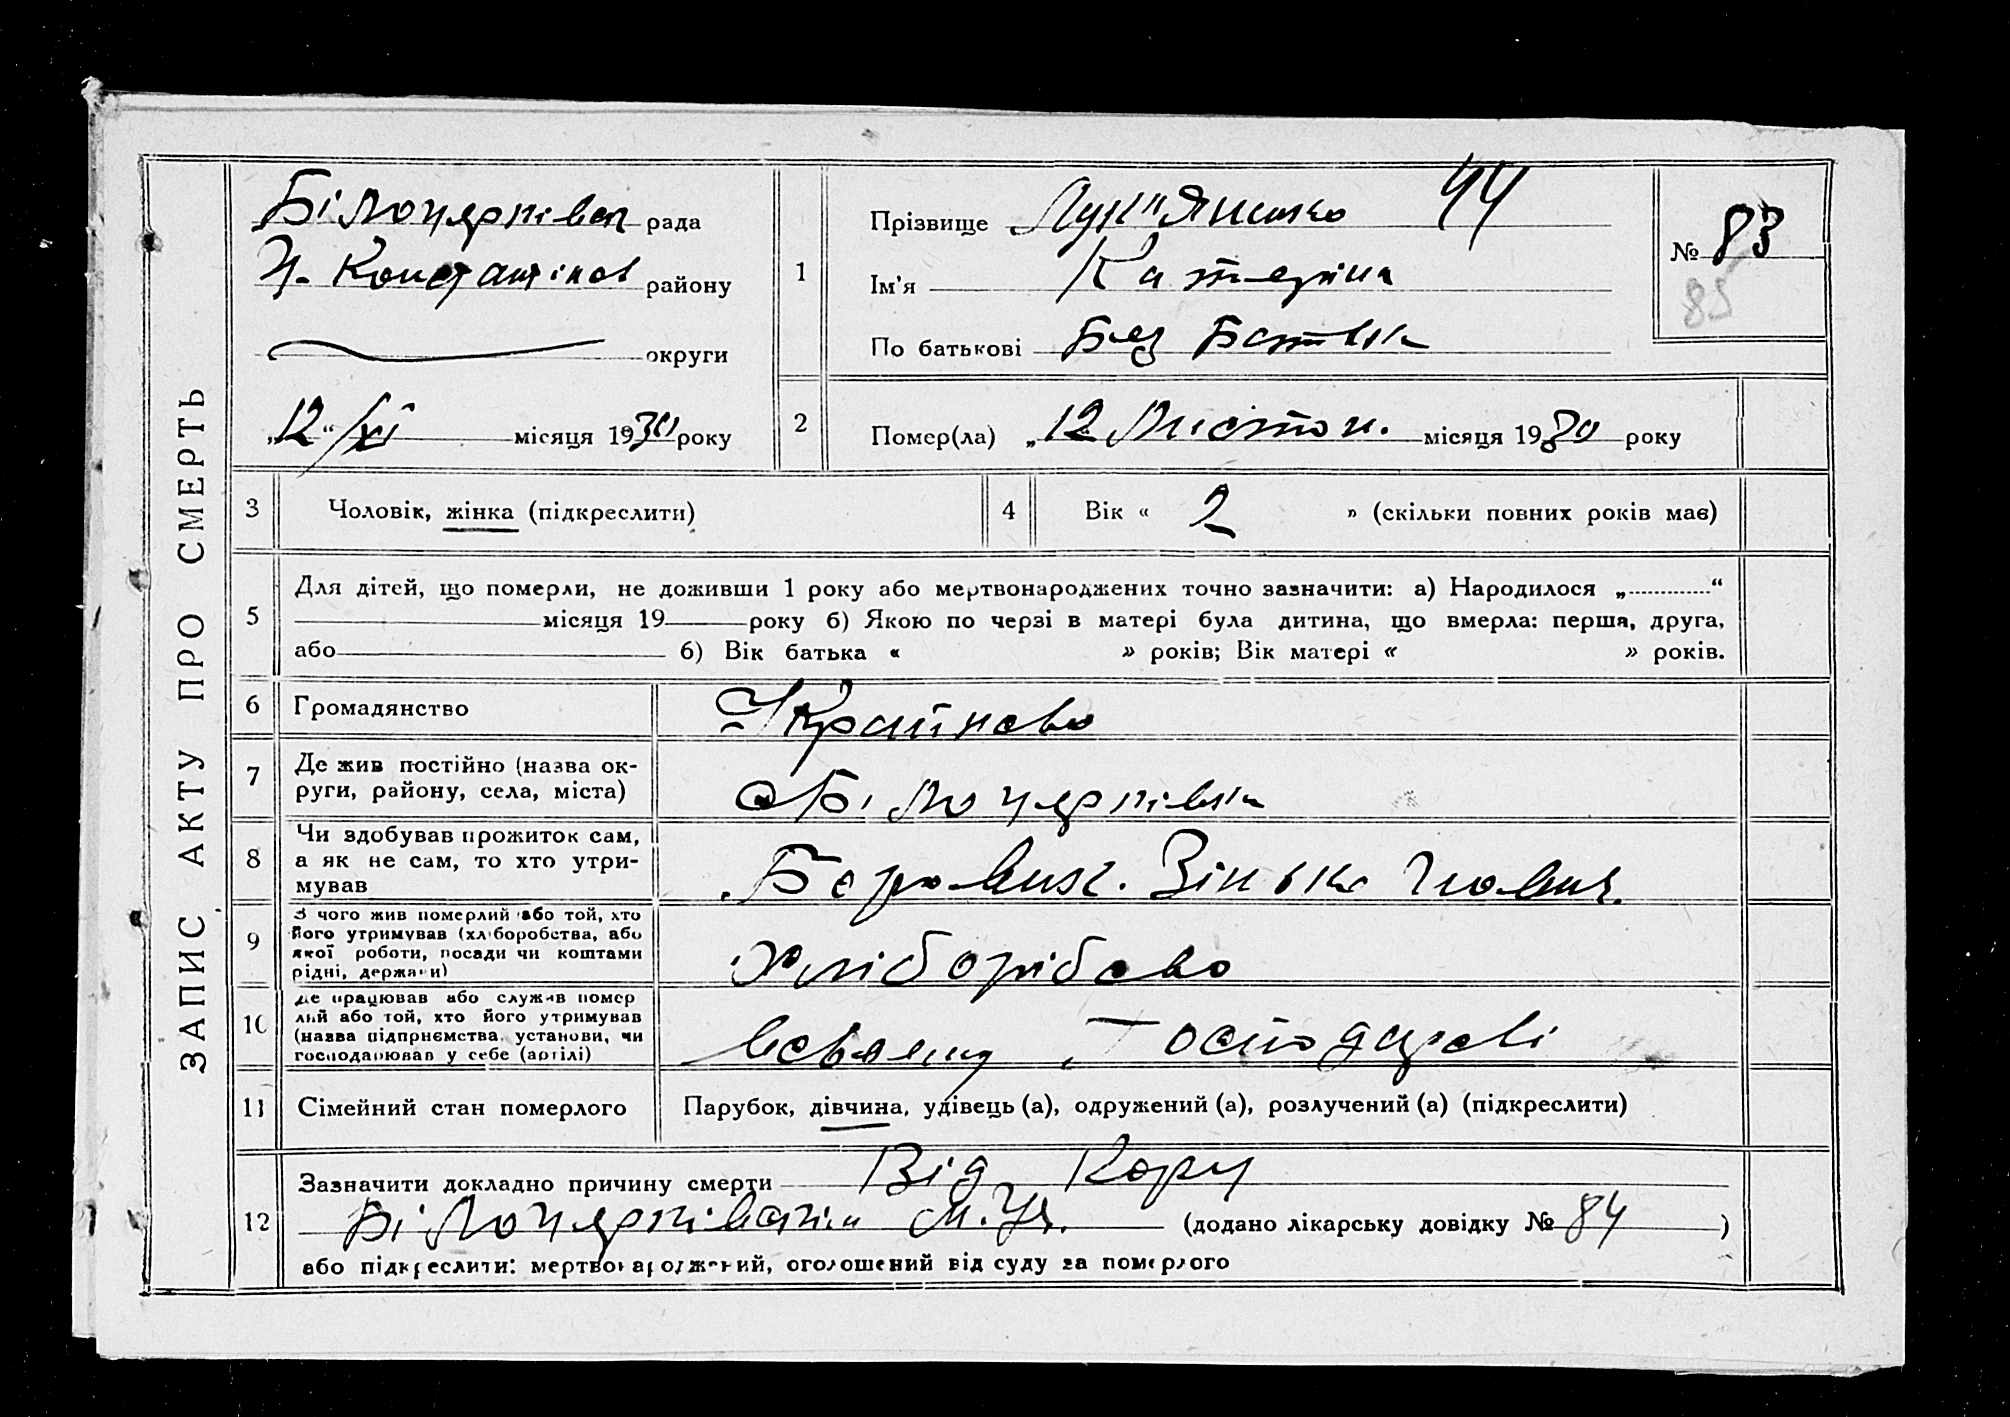 ЗАПИС АКТУ ПРО СМЕРТЬ
Білоцерківська рада
району
округи
„12“ XI місяця 1930 року
1
Прізвище Лук"яненко 44
Ім'я Катерина
По батькові Без Батьк
№ 83
85
2
Помер(ла) „12 Листоп. місяця 1930 року
3 Чоловік, жінка (підкреслити)
4 Вік « 2 » (скільки повних років має)
5 Для дітей, що померли, не доживши 1 року або мертвонароджених точно зазначити: а) Народилося „............“
місяця 19 року б) Якою по черзі в матері була дитина, що вмерла: перша, друга,
або б) Вік батька « » років; Вік матері « » років.
6 Громадянство
7 Де жив постійно (назва ок-
руги, району, села, міста)
Білоцерківка
8 Чи здобував прожиток сам,
а як не сам, то хто утри-
мував
Зінька
9 З чого жив померлий або той, хто
його утримував (хліборобства, або
якої роботи, посади чи коштами
рідні, держави)
10 Де працював або служив помер
лий або той, хто його утримував
(назва підприємства, установи, чи
господарював у себе (артілі)
Господарсві
11 Сімейний стан померлого
Парубок, дівчина, удівець (а), одружений (а), розлучений (а) (підкреслити)
12 Зазначити докладно причину смерти Від Кору
(додано лікарську довідку № 84 )
або підкреслити: мертвонароджений, оголошений від суду за померлого